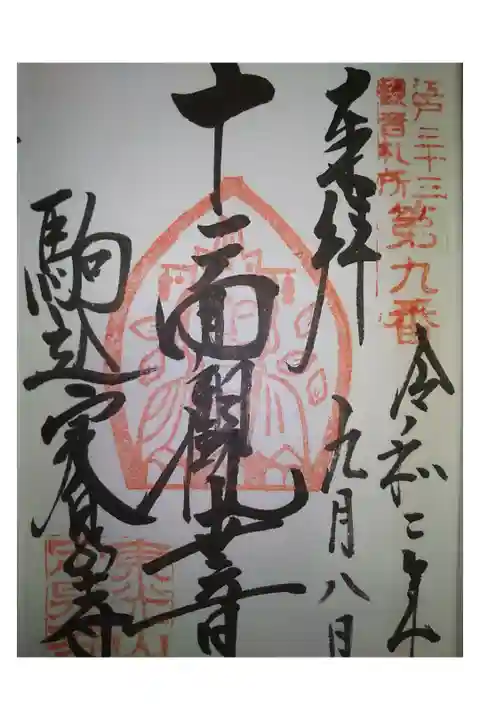 江戸三十三
観音札所
第九番
令和二年
九月八日
奉拝
十一面観世音
駒込定泉寺